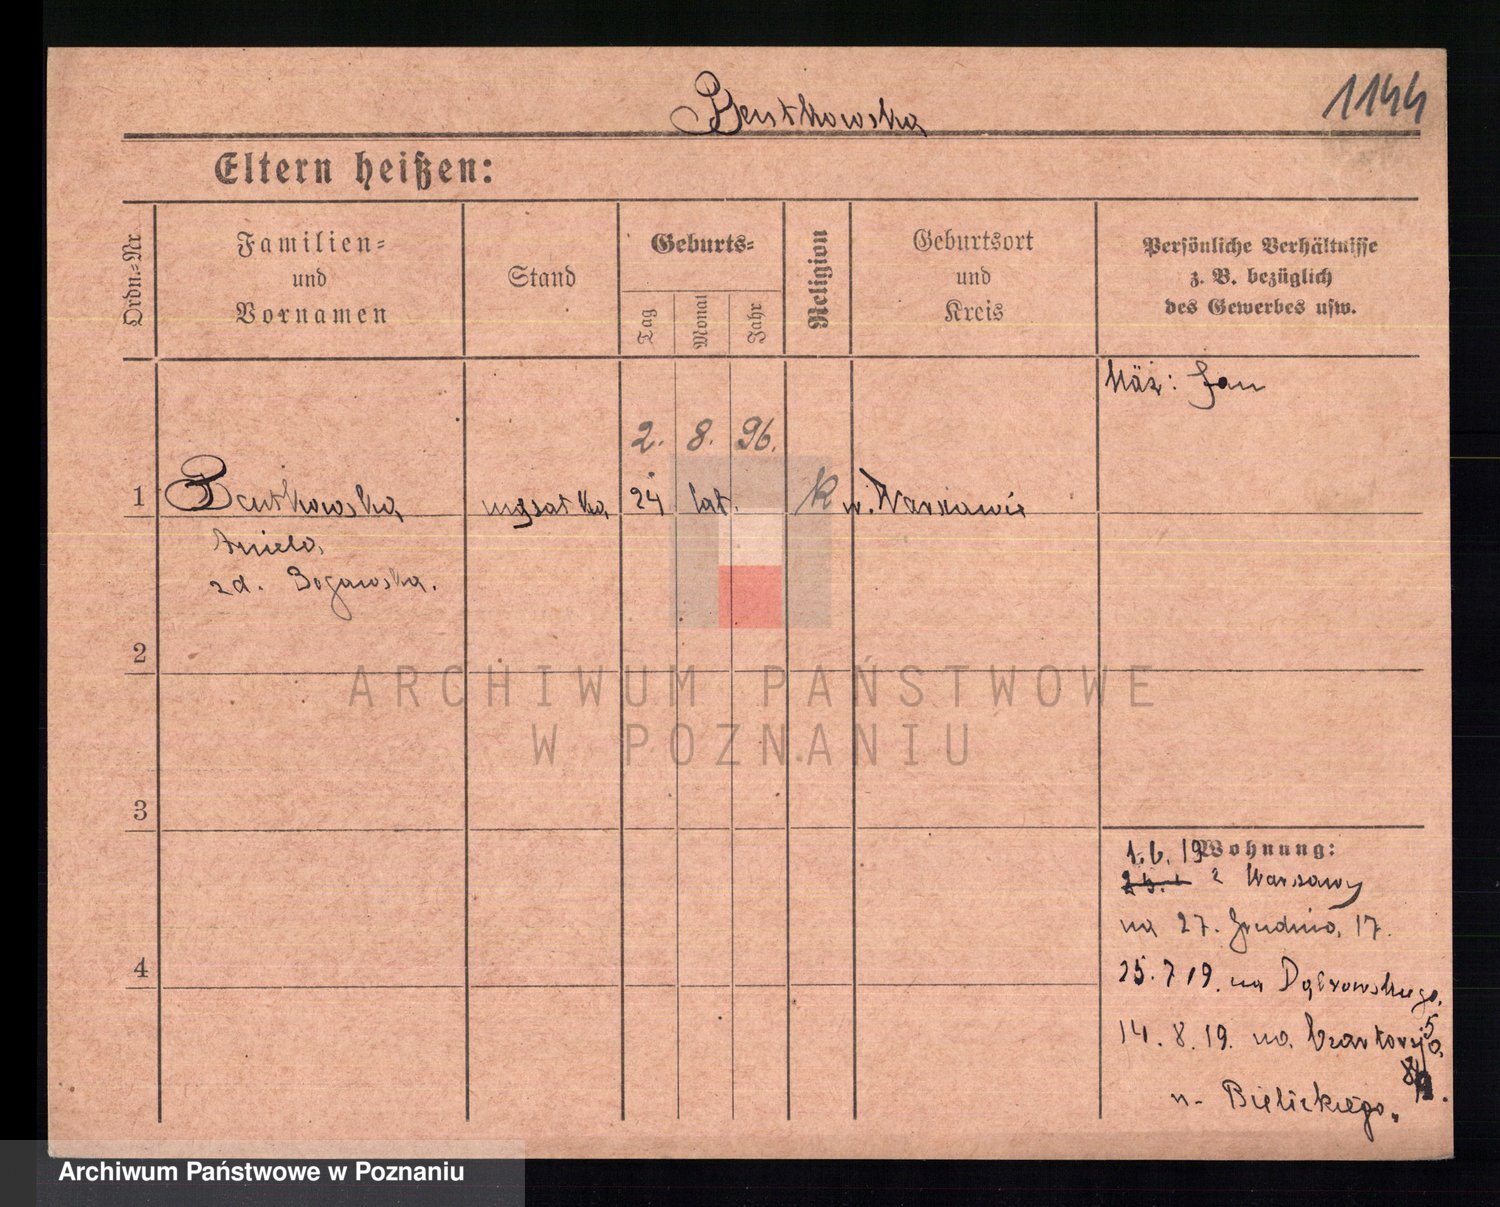 1144
Bentkowska
Eltern heißen:
Ordn.=Nr.
Familien=
und
Vornamen
Stand
Geburts=
Tag
Monat
Jahr
Religion
Geburtsort
und
Kreis
Persönliche Verhältnisse
z. B. bezüglich
des Gewerbes usw.
Mąż: Jan
2. 8. 96.
1 Bentkowska 24 lat. k w. Warszawie
Aniela
zd. Bogawska.
2
3
4
Wohnung:
1.6.19
z Warszawy
na 27. Grudnia, 17.
25.7.19. na Dąbrowskiego.
5
14.8.19. na
n- Bielickiego.
ARCHIWUM PAŃSTWOWE
W POZNANIU
Archiwum Państwowe w Poznaniu